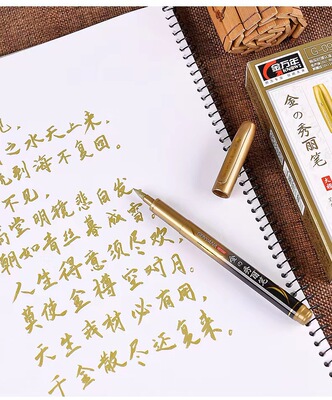 见,
之水天上来,
流到海不复回。
不见,
高堂明镜悲白发
朝如青丝暮成雪。
人生得意须尽欢,
莫使金樽空对月。
天生我材必有用,
千金散尽还复来。
金の秀丽笔
金万年
GENVANA
金の秀丽笔